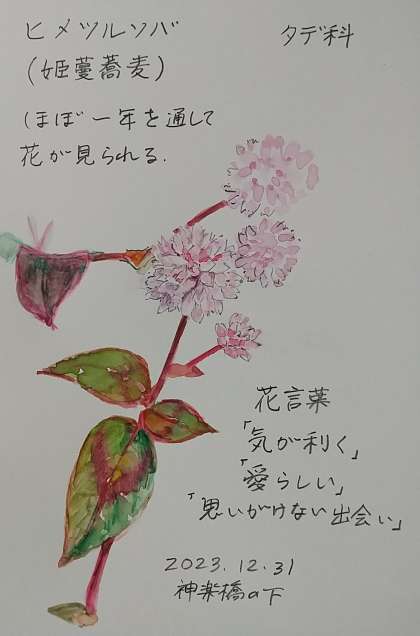 ヒメツルソバ
タデ科
(姫蔓蕎麦)
ほぼ一年を通して
花が見られる.
花言葉
「気が利く」
「愛らしい」
「思いがけない出会い」
2023.12.31
神楽橋の下